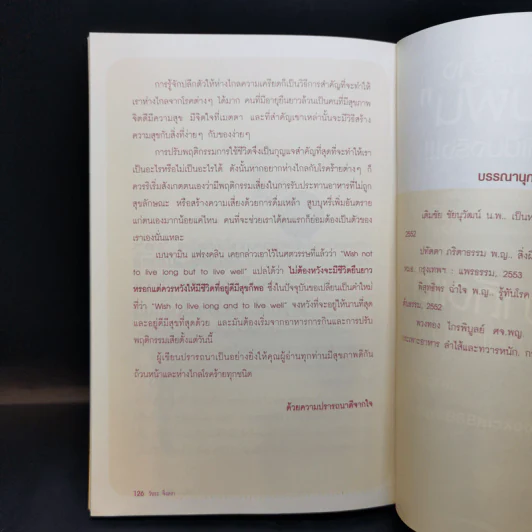 การรู้จักปลีกตัวให้ห่างไกลความเครียดก็เป็นวิธีการสำคัญที่จะทำให้
เราห่างไกลจากโรคต่างๆ ได้มาก คนที่มีอายุยืนยาวล้วนเป็นคนที่มีสุขภาพ
จิตดีมีความสุข มีจิตใจที่เมตตา และที่สำคัญเขาเหล่านั้นจะมีวิธีสร้าง
ความสุขกับสิ่งที่ง่ายๆ กับของง่ายๆ
การปรับพฤติกรรมการใช้ชีวิตจึงเป็นกุญแจสำคัญที่สุดที่จะทำให้เรา
เป็นอะไรหรือไม่เป็นอะไรได้ ดังนั้นหากอยากห่างไกลกับโรคร้ายต่างๆ ก็
ควรริเริ่มสังเกตตนเองว่ามีพฤติกรรมเสี่ยงในการรับประทานอาหารที่ไม่ถูก
สุขลักษณะ หรือสร้างความเสี่ยงด้วยการดื่มเหล้า สูบบุหรี่เพิ่มอันตราย
แก่ตนเองมากน้อยแค่ไหน คนที่จะช่วยเราได้คนแรกก็ย่อมต้องเป็นตัวของ
เราเองนั่นแหละ
เบนจามิน แฟรงคลิน เคยกล่าวเอาไว้ในศตวรรษที่แล้วว่า "Wish not
to live long but to live well" แปลได้ว่า ไม่ต้องหวังจะมีชีวิตยืนยาว
หรอกแต่ควรหวังให้มีชีวิตที่อยู่ดีมีสุขก็พอ ซึ่งในปัจจุบันขอเปลี่ยนเป็นคำใหม่
ที่ว่า "Wish to live long and to live well" จงหวังที่จะอยู่ให้นานที่สุด
และอยู่ดีมีสุขที่สุดด้วย และมันต้องเริ่มจากอาหารการกินและการปรับ
พฤติกรรมเสียตั้งแต่วันนี้
ผู้เขียนปรารถนาเป็นอย่างยิ่งให้คุณผู้อ่านทุกท่านมีสุขภาพดีกัน
ถ้วนหน้าและห่างไกลโรคร้ายทุกชนิด
ด้วยความปรารถนาดีจากใจ
126
บรรณานุก
เติมชัย ไชยนุวัฒน์ น.พ.. เป็นห
2552
ปพัดดา ภริตาธรรม พ.ญ..
กรุงเทพฯ : แพรธรรม, 2553
พิสุทธิ์พร ฉ่ำใจ พ.ญ.. รู้ทันโรค
2552
พวงทอง ไกรพิบูลย์ ศจ.พญ.
อาหาร ลำไส้และทวารหนัก.